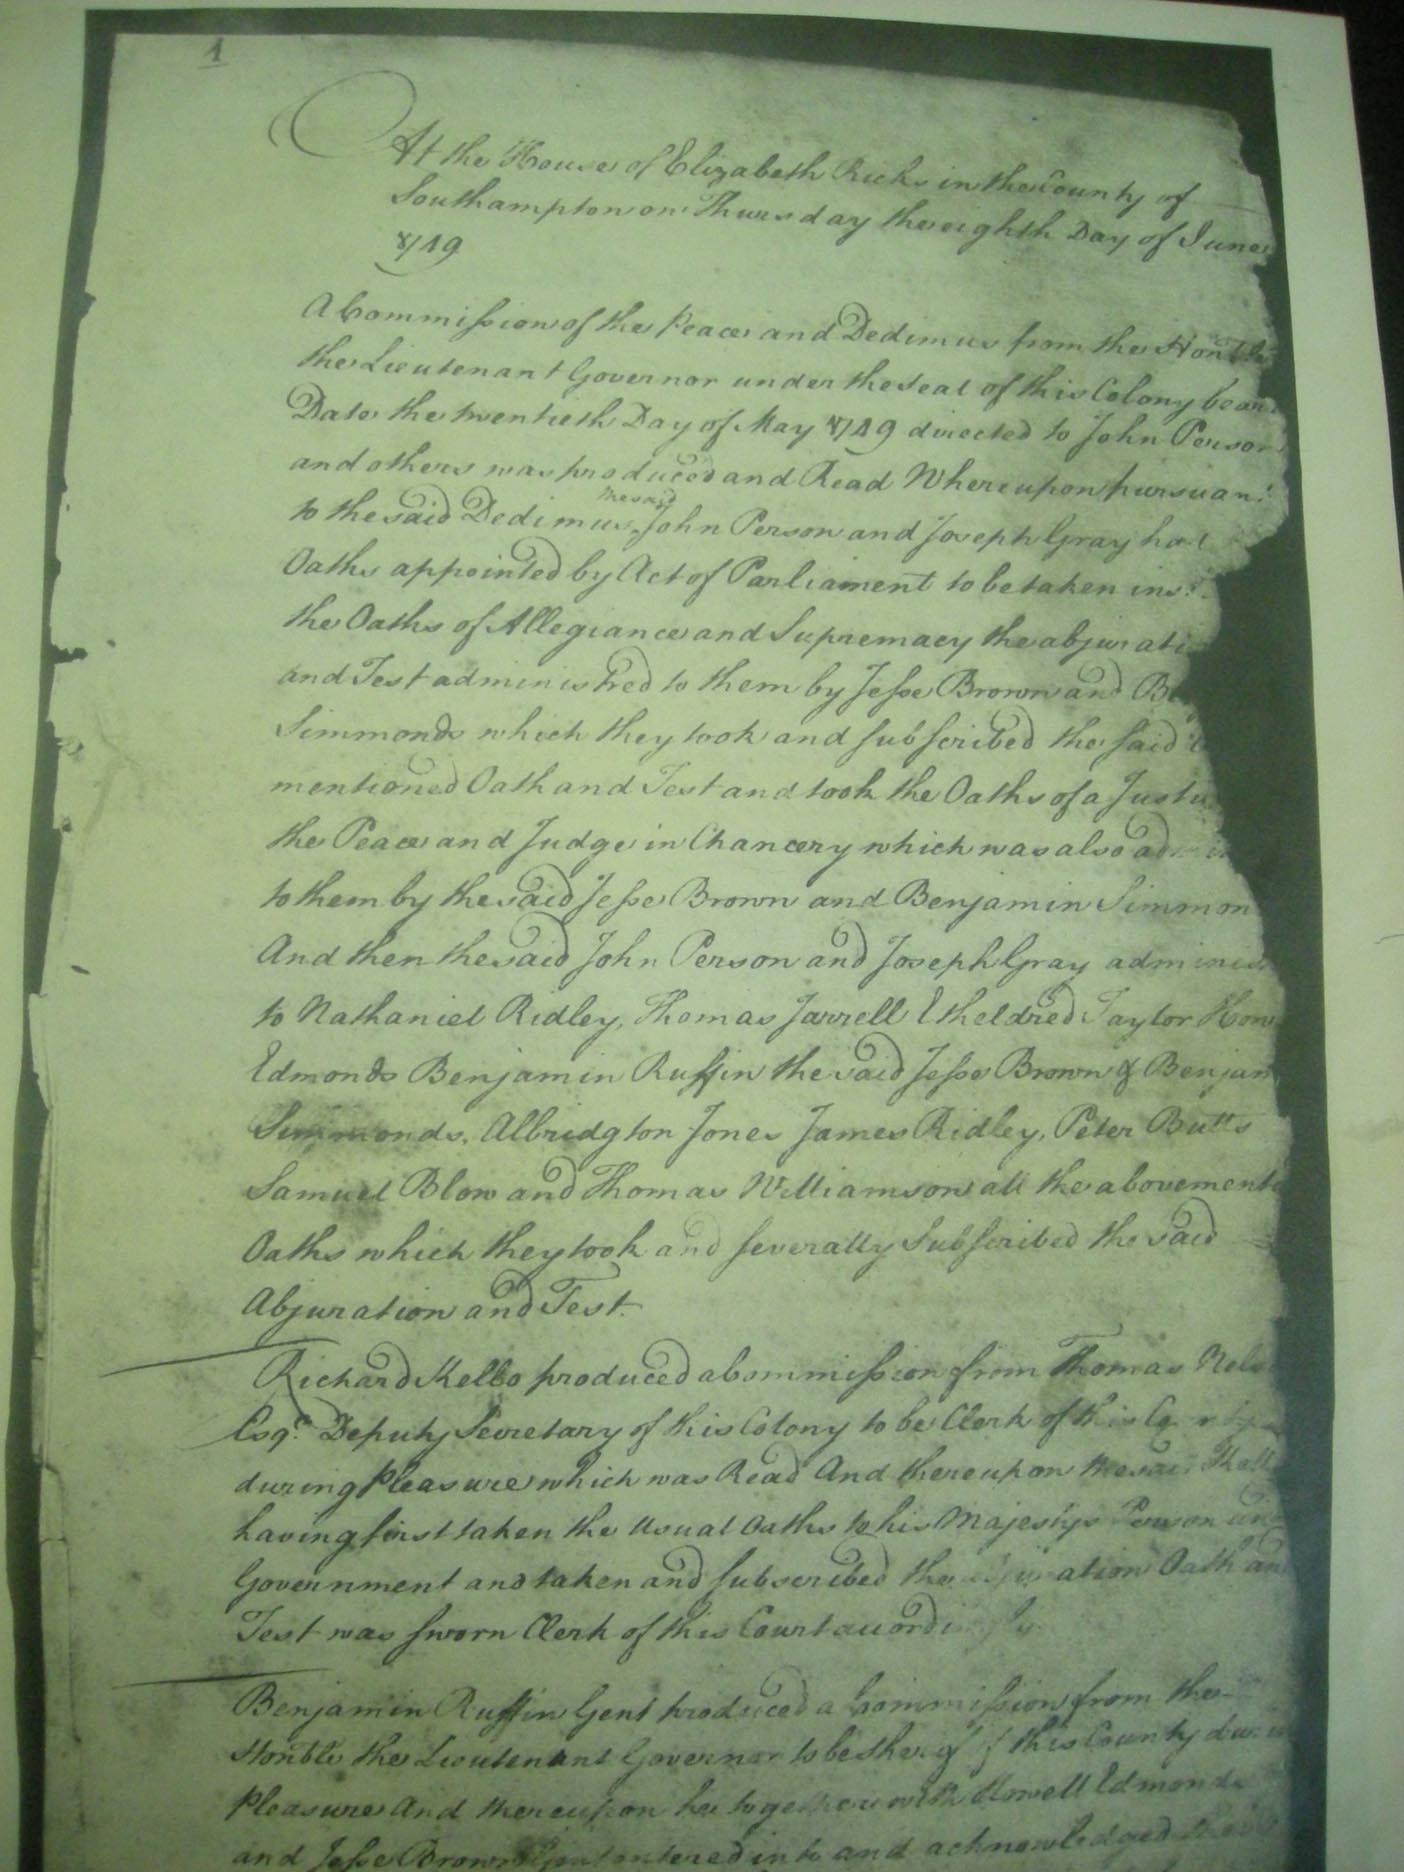 1
At the House of Elizabeth Ricks in the County of
Southampton on Thursday the eighth Day of June
1749
A Commission of the Peace and Dedimus from the Honble
the Lieutenant Governor under the Seal of this Colony bear
Date the twentieth Day of May 1749 directed to John Person
and others was produced and Read Whereupon pursuant
the said
to the said Dedimus John Person and Joseph Gray had
Oaths appointed by Act of Parliament to be taken ins
the Oaths of Allegiance and Supremacy the abjurati
and Test administred to them by Jesse Brown and Be
Simmonds which they took and subscribed the said
mentioned Oath and Test and took the Oaths of a Justi
the Peace and Judge in Chancery which was also admin
to them by the said Jesse Brown and Benjamin Simmon
And then the said John Person and Joseph Gray adminis
to Nathaniel Ridley, Thomas Jarrell Etheldred Taylor How
Edmonds Benjamin Ruffin the said Jesse Brown & Benjam
Simmonds, Albridgton Jones James Ridley, Peter Butts
Samuel Blow and Thomas Williamson all the abovement
Oaths which they took and severally Subscribed the said
Abjuration and Test.
Richard Kello produced a Commission from Thomas Nels
Esqr. Deputy Secretary of this Colony to be Clerk of this County
during Pleasure which was Read And thereupon the said Kell
having first taken the usual Oaths to his Majestys Person an
Government and taken and subscribed the abjuration Oath an
Test was sworn Clerk of this Court accordingly
Benjamin Ruffin Gent produced a Commission from the
Honble the Lieutenant Governor to be Sherif of this County dur
Pleasure And thereupon he together with Howell Edmonds
and Jesse Brown Gent entered into and acknowledged their